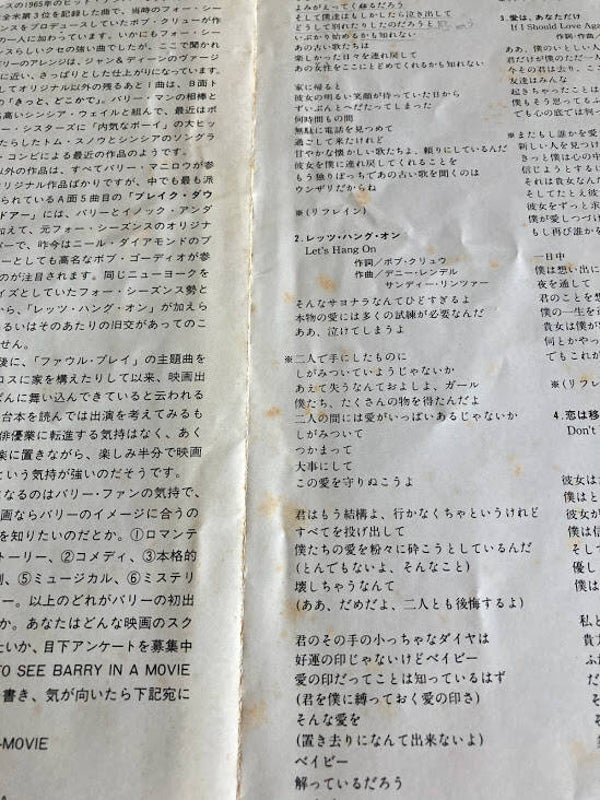 ンスの1965年のヒット
全米第3位を記録した曲で、当時のフォー・シー
ンズをプロデュースしていたボブ・クリューが作
一人に加わっています。いかにもフォー・シー
ンスらしいクセの強い曲でしたが、ここで聞かれ
バリーのアレンジは、ジャン&ディーンのヴァージ
に近い、さっぱりとした仕上がりになっています。
してオリジナル以外の残るあと1曲は、B面ト
の「きっと、どこかで」。バリー・マンの相棒と
名高いシンシア・ウェイルと組んで、最近はポ
・シスターズに「内気なボーイ」の大ヒッ
たらしたトム・スノウとシンシアのソングラ
・コンビによる最近の作品のようです。
以外の作品は、すべてバリー・マニロウが参
オリジナル作品ばかりですが、中でも最も派
られているA面5曲目の「ブレイク・ダウ
ドアー」には、バリーとイノック・アンダ
加えて、元フォー・シーズンスのオリジナ
バーで、昨今はニール・ダイアモンドのプ
ーとしても高名なボブ・ゴーディオが参
のが注目されます。同じニューヨークを
イズとしていたフォー・シーズンス勢と
から、「レッツ・ハング・オン」が加えら
るいはその あたりの旧交があってのこ
せん。
後に、「ファウル・プレイ」の主題曲を
ロスに家を構えたりして以来、映画出
ぱんに舞い込んできていると云われる
台本を読んでは出演を考えてみるも
俳優業に転進する気持はなく、あく
楽に置きながら、楽しみ半分で映画
という気持が強いのだそうです。
なるのはバリー・ファンの気持で、
画ならバリーのイメージに合うの
を知りたいのだとか。①ロマンテ
ォーリー、②コメディ、③本格的
劇、⑤ミュージカル、⑥ミステリ
ー。以上のどれがバリーの初出
か。あなたはどんな映画のスク
たいか、目下アンケートを募集中
TO SEE BARRY IN A MOVIE
書き、気が向いたら下記宛に
-MOVIE
よみがえってくるだろう
そして僕達はもしかしたら泣き出して
どうして別れたりしたのだろうと
いぶかり始めるかも知れない
あの古い歌たちは
楽しかった日々を連れ戻して
あの女性をここにとどめてくれるかも知れない
家に帰ると
彼女の明るい笑顔が待っていた日から
ずいぶんとへだたってしまった
何時間もの間
無駄に電話を見つめて
過ごして来たけれど
甘やかな懐かしい歌たちよ、頼りにしているんだ
彼女を僕に連れ戻してくれることを
もう独りぼっちであの古い歌を聞くのは
ウンザリだからね
※(リフレイン)
2.レッツ・ハング・オン
Let's Hang On
作詞/ボブ・クリュウ
作曲/デニー・レンデル
サンディー・リンツァー
そんなサヨナラなんてひどすぎるよ
本物の愛には多くの試練が必要なんだ
ああ、泣けてしまうよ
※二人で手にしたものに
しがみついていようじゃないか
あえて失うなんておよしよ、ガール
僕たち、たくさんの物を得たんだよ
二人の間には愛がいっぱいあるじゃないか
しがみついて
つかまって
大事にして
この愛を守りぬこうよ
君はもう結構よ、行かなくちゃというけれど
すべてを投げ出して
僕たちの愛を粉々に砕こうとしているんだ
(とんでもないよ、そんなこと)
壊しちゃうなんて
(ああ、だめだよ、二人とも後悔するよ)
君のその手の小っちゃなダイヤは
好運の印じゃないけどベイビー
愛の印だってことは知っているはず
(君を僕に縛っておく愛の印さ)
そんな愛を
(置き去りになんて出来ないよ)
ベイビー
解っているだろう
3.愛は、あなただけ
If I Should Love Aga
作詞・作曲
ああ、僕のいとしい人
君だけが僕のただ一人
今その君は去り、こ
友達はみんな
起きちゃったことは
僕もそう思ってるふ
でも心の底では判っ
※またもし誰かを愛
新しい人を見つけ
きっと僕は心の中
信じようとするに
それは貴女なんだ
そしてたとえ彼
貴女をずっと求
僕が愛しつづけ
もし再び誰かを
一日中
僕は想い出に
夜を通して
君のことを想
僕の一生を通
貴女は僕が
何とかやっ
でもこれが
※(リフレ
4.恋は移
Don't
彼女は
僕はと
彼女が
僕は信
そして
優し
僕は
私と
貴方
ふた
だ